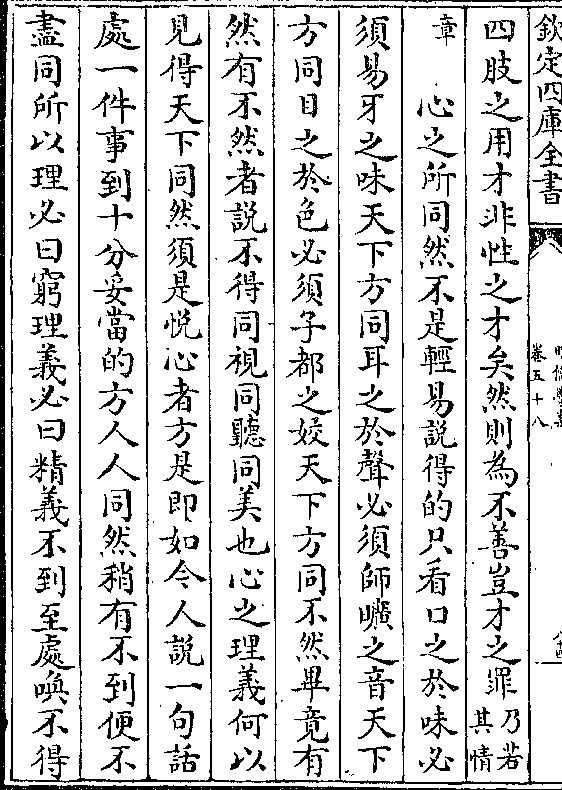 欽定四庫全書
卷五十八
四肢之用才非性之才矣然則為不善豈才之罪乃若其情
章　心之所同然不是輕易説得的只看口之於味必
須易牙之味天下方同耳之於聲必須師曠之音天下
方同目之於色必須子都之姣天下方同不然畢竟有
然有不然者説不得同視同聽同美也心之理義何以
見得天下同然須是悦心者方是即如今人説一句話
處一件事到十分妥當的方人人同然稍有不到便不
盡同所以理必曰窮理義必曰精義不到至處喚不得